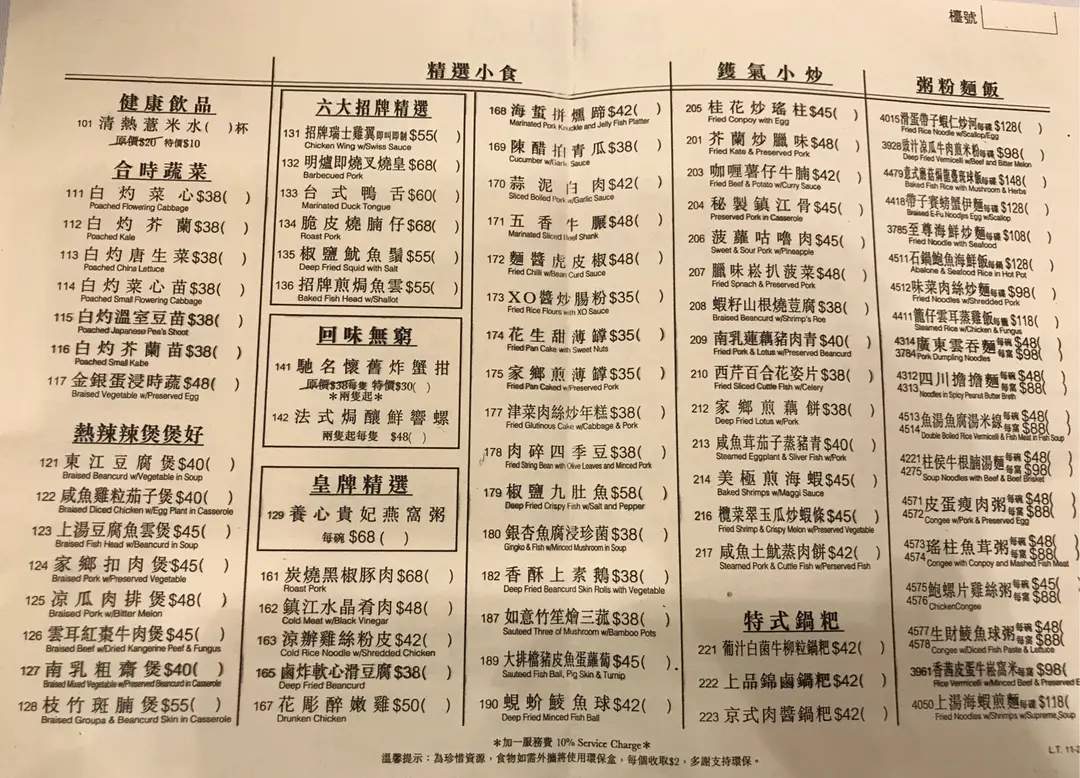 檯號
健康飲品
101 清熱薏米水( )杯
原價$20 特價$10
合時蔬菜
111 白灼菜心$38( )
Poached Flowering Cabbage
112 白灼芥蘭$38( )
Poached Kale
113 白灼唐生菜$38( )
Poached China Lettuce
114 白灼菜心苗$38( )
Poached Small Flowering Cabbage
115 白灼溫室豆苗$38( )
Poached Japanese Pea's Shoot
116 白灼芥蘭苗$38( )
Poached Small Kabe
117 金銀蛋浸時蔬$48( )
Braised Vegetable w/Preserved Egg
熱辣辣煲煲好
121 東江豆腐煲$40( )
Braised Beancurd w/Vegetable in Soup
122 咸魚雞粒茄子煲$40( )
Braised Diced Chicken w/Egg Plant in Casserole
123 上湯豆腐魚雲煲$45( )
Braised Fish Head w/Beancurd in Soup
124 家鄉扣肉煲$45( )
Braised Pork w/Preserved Vegetable
125 凉瓜肉排煲$48( )
Braised Pork w/Bitter Melon
126 雲耳紅棗牛肉煲$45( )
Braised Beef w/Dried Kangerine Peef & Fungus
127 南乳粗齋煲$40( )
Braised Mixed Vegetable w/Preserved Beancurd in Casserole
128 枝竹斑腩煲$55( )
Braised Groupa & Beancurd Skin in Casserole
精選小食
六大招牌精選
131 招牌瑞士雞翼即叫即制$55( )
Chicken Wing w/Swiss Sauce
132 明爐即燒叉燒皇$68( )
Barbecued Pork
133 台式鴨舌$60( )
Marinated Duck Tongue
134 脆皮燒腩仔$68( )
Roast Pork
135 椒鹽魷魚鬚$55( )
Deep Fried Squid with Salt
136 招牌煎焗魚雲$55( )
Baked Fish Head w/Shallot
回味無窮
141 馳名懷舊炸蟹拑
原價$38每隻 特價$30( )
*兩隻起*
142 法式焗釀鮮響螺
兩隻起每隻 $48( )
皇牌精選
129 養心貴妃燕窩粥
每碗 $68 ( )
161 炭燒黑椒豚肉$68( )
Roast Pork
162 鎮江水晶肴肉$48( )
Cold Meat w/Black Vinegar
163 涼辦雞絲粉皮$42( )
Cold Rice Noodle w/Shredded Chicken
165 鹵炸軟心滑豆腐$38( )
Deep Fried Beancurd
167 花彫醉嫩雞$50( )
Drunken Chicken
168 海蜇拼燻蹄$42( )
Marinated Pork Knuckle and Jelly Fish Platter
169 陳醋拍青瓜$38( )
Cucumber w/Garlic Sauce
170 蒜泥白肉$42( )
Sliced Boiled Pork w/Garlic Sauce
171 五香牛𦟌$48( )
Marinated Sliced Beef Shank
172 麵醬虎皮椒$48( )
Fried Chilli w/Bean Curd Sauce
173 XO醬炒腸粉$35( )
Fried Rice Flours with XO Sauce
174 花生甜薄罉$35( )
Fried Pan Cake with Sweet Nuts
175 家鄉煎薄罉$35( )
Fried Pan Caked w/Preserved Pork
177 津菜肉絲炒年糕$38( )
Fried Glutinous Cake w/Cabbage & Pork
178 肉碎四季豆$38( )
Fried String Bean with Olive Leaves and Minced Pork
179 椒鹽九肚魚$58( )
Deep Fried Crispy Fish w/Salt and Pepper
180 銀杏魚腐浸珍菌$38( )
Gingko & Fish w/Minced Mushroom in Soup
182 香酥上素鵝$38( )
Deep Fried Beancurd Skin Rolls with Vegetable
187 如意竹笙燴三菰$38( )
Sauteed Three of Mushroom w/Bamboo Pots
189 大排檔豬皮魚蛋蘿蔔$45( )
Sauteed Fish Ball, Pig Skin & Turnip
190 蜆蚧鯪魚球$42( )
Deep Fried Minced Fish Ball
鑊氣小炒
205 桂花炒瑤柱$45( )
Fried Conpoy with Egg
201 芥蘭炒臘味$48( )
Fried Kate & Preserved Pork
203 咖喱薯仔牛腩$42( )
Fried Beef & Potato w/Curry Sauce
204 秘製鎮江骨$45( )
Preserved Pork in Casserole
206 菠蘿咕嚕肉$45( )
Sweet & Sour Pork w/Pineapple
207 臘味崧扒菠菜$48( )
Fried Spinach & Preserved Pork
208 蝦籽山根燒荳腐$38( )
Braised Beancurd w/Shrimp's Roe
209 南乳蓮藕豬肉青$40( )
Fried Pork & Lotus w/Preserved Beancurd
210 西芹百合花姿片$38( )
Fried Sliced Cuttle Fish w/Celery
212 家鄉煎藕餅$38( )
Deep Fried Lotus w/Pork
213 咸魚茸茄子蒸豬青$40( )
Steamed Eggplant & Sliver Fish w/Pork
214 美極煎海蝦$45( )
Baked Shrimps w/Maggi Sauce
216 欖菜翠玉瓜炒蝦條$45( )
Fried Shrimp & Crispy Melon w/Preserved Vegetable
217 咸魚土魷蒸肉餅$42( )
Steamed Pork & Cuttle Fish w/Perserved Fish
特式鍋粑
221 葡汁白菌牛柳粒鍋粑$42( )
222 上品錦鹵鍋粑$42( )
223 京式肉醬鍋粑$42( )
粥粉麵飯
4015 滑蛋帶子蝦仁炒河每碟$128( )
Fried Rice Noodle w/Scallop/Egg
3928 豉汁凉瓜牛肉煎米粉每碟$98( )
Deep Fried Vermicelli w/Beef and Bitter Melon
4479 意式蘑菇焗龍躉斑球飯$148( )
Baked Fish Rice with Mushroom & Herbs
4418 帶子賽螃蟹伊麵每碟$128( )
Braised E-Fu Noodles Egg w/Scallop
3785 至尊海鮮炒麵每碟$108( )
Fried Noodle with Seafood
4511 石鍋鮑魚海鮮飯每鍋$128( )
Abalone & Seafood Rice in Hot Pot
4512 味菜肉絲炒麵每碟$98( )
Fried Noodles w/Shredded Pork
4411 籠仔雲耳蒸雞飯每籠$118( )
Steamed Rice w/Chicken & Fungus
4314 3784 廣東雲吞麵每碗$48( ) 每窩$98( )
Pork Dumpling Noodles
4312 4313 四川擔擔麵每碗$48( ) 每窩$88( )
Noodles in Spicy Peanut Butter Breth
4513 4514 魚湯魚腐湯米線每碗$48( ) 每窩$88( )
Double Boiled Rice Vermicelli & Fish Meat in Fish Soup
4221 4275 柱侯牛根腩湯麵每碗$48( ) 每窩$98( )
Soup Noodles with Beef & Beef Brisket
4571 4572 皮蛋瘦肉粥每碗$48( ) 每窩$88( )
Congee w/Pork & Preserved Egg
4573 4574 瑤柱魚茸粥每碗$48( ) 每窩$88( )
Congee with Conpoy and Mashed Fish Meat
4575 4576 鮑螺片雞絲粥每碗$45( ) 每窩$88( )
ChickenCongee
4577 4578 生財鯪魚球粥每碗$48( ) 每窩$88( )
Congee w/Diced Fish Paste & Lettuce
3961 香茜皮蛋牛崧窩米每窩$98( )
Rice Vermicelli w/Minced Beef & Preserved E
4050 上湯海蝦煎麵每碟$118(
Fried Noodles w/Shrimps w/Supreme Soup
*加一服務費 10% Service Charge*
溫馨提示:為珍惜資源,食物如需外攜將使用環保盒,每個收取$2,多謝支持環保。
L.T. 11-2